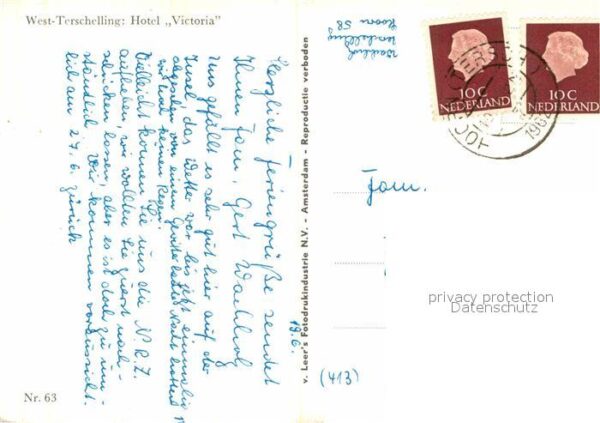 West-Terschelling: Hotel „Victoria"
Herzliche Feriengrüße sendet
Ihnen Fam. Gert
Uns gefällt es sehr gut hier auf der
Insel, das Wetter war bis jetzt einmalig
abgesehen von einem Gewitter letzte Nacht hatten
wir noch keinen Regen.
Vielleicht können Sie uns die N.R.Z.
aufheben, wir wollten Sie zuerst nach-
schicken lassen, aber es ist doch zu um-
ständlich. Wir kommen voraussicht-
lich am 27.6. zurück
19.6.
Nr. 63
v. Leer's Fotodrukindustrie N.V. - Amsterdam - Reproductie verboden
10 C
NEDERLAND
10 C
NEDERLAND
1962
Fam.
(413)
privacy protection
Datenschutz